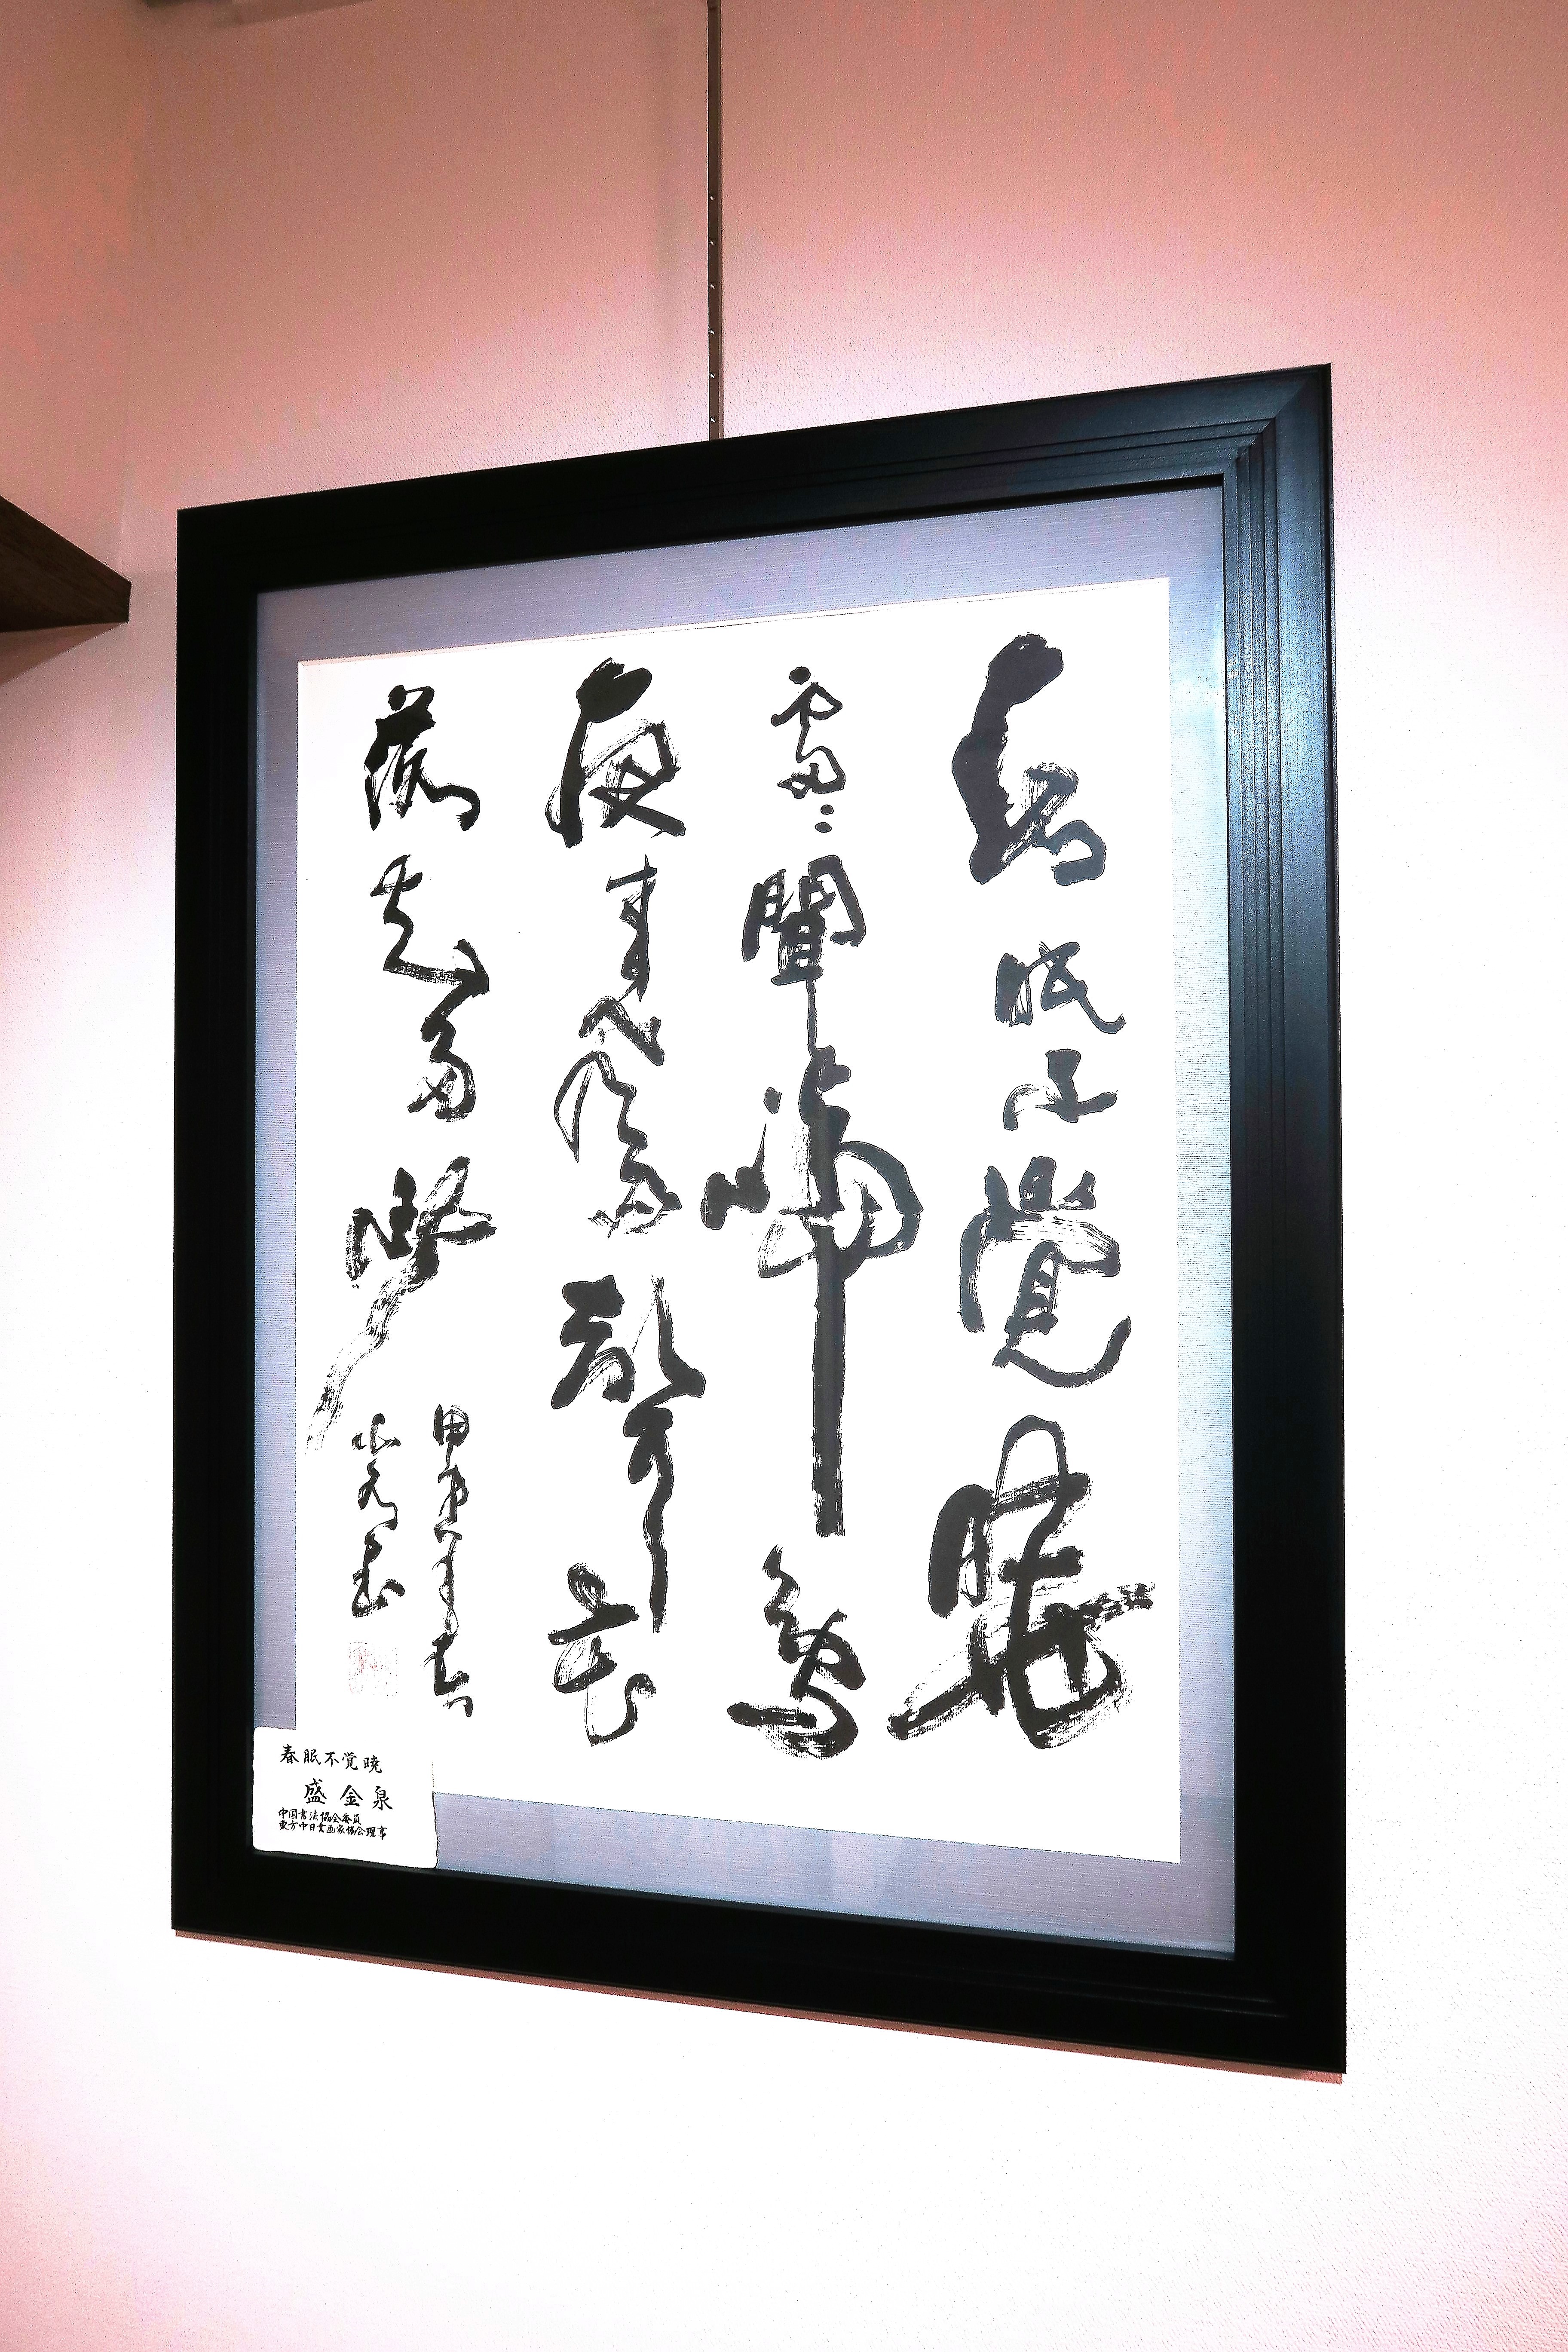 春眠不覚暁
處々聞啼鳥
夜来風雨聲花
落知多少
甲申年春
春眠不覚暁
盛金泉
中国書法協会委員
東方中日書画家協会理事